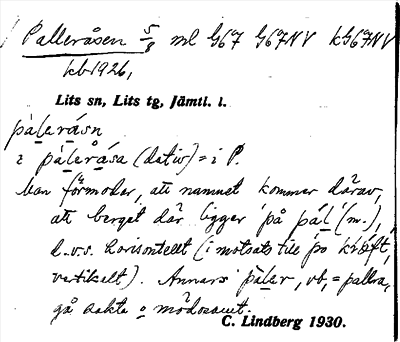 Palleråsen 5/8 ml G67 G67NV kG67NV
kb 1926,
Lits sn, Lits tg, Jämtl. l.
pàlerásn
i pàleråsa (dativ) = i P.
kan förmodar, att namnet kommer därav,
att berget där ligger på pál (m.),
d.v.s. horisontellt (i motsats till på
vertikalt). Annars pàler, vb, = pallra,
gå sakta o mödosamt.
C. Lindberg 1930.